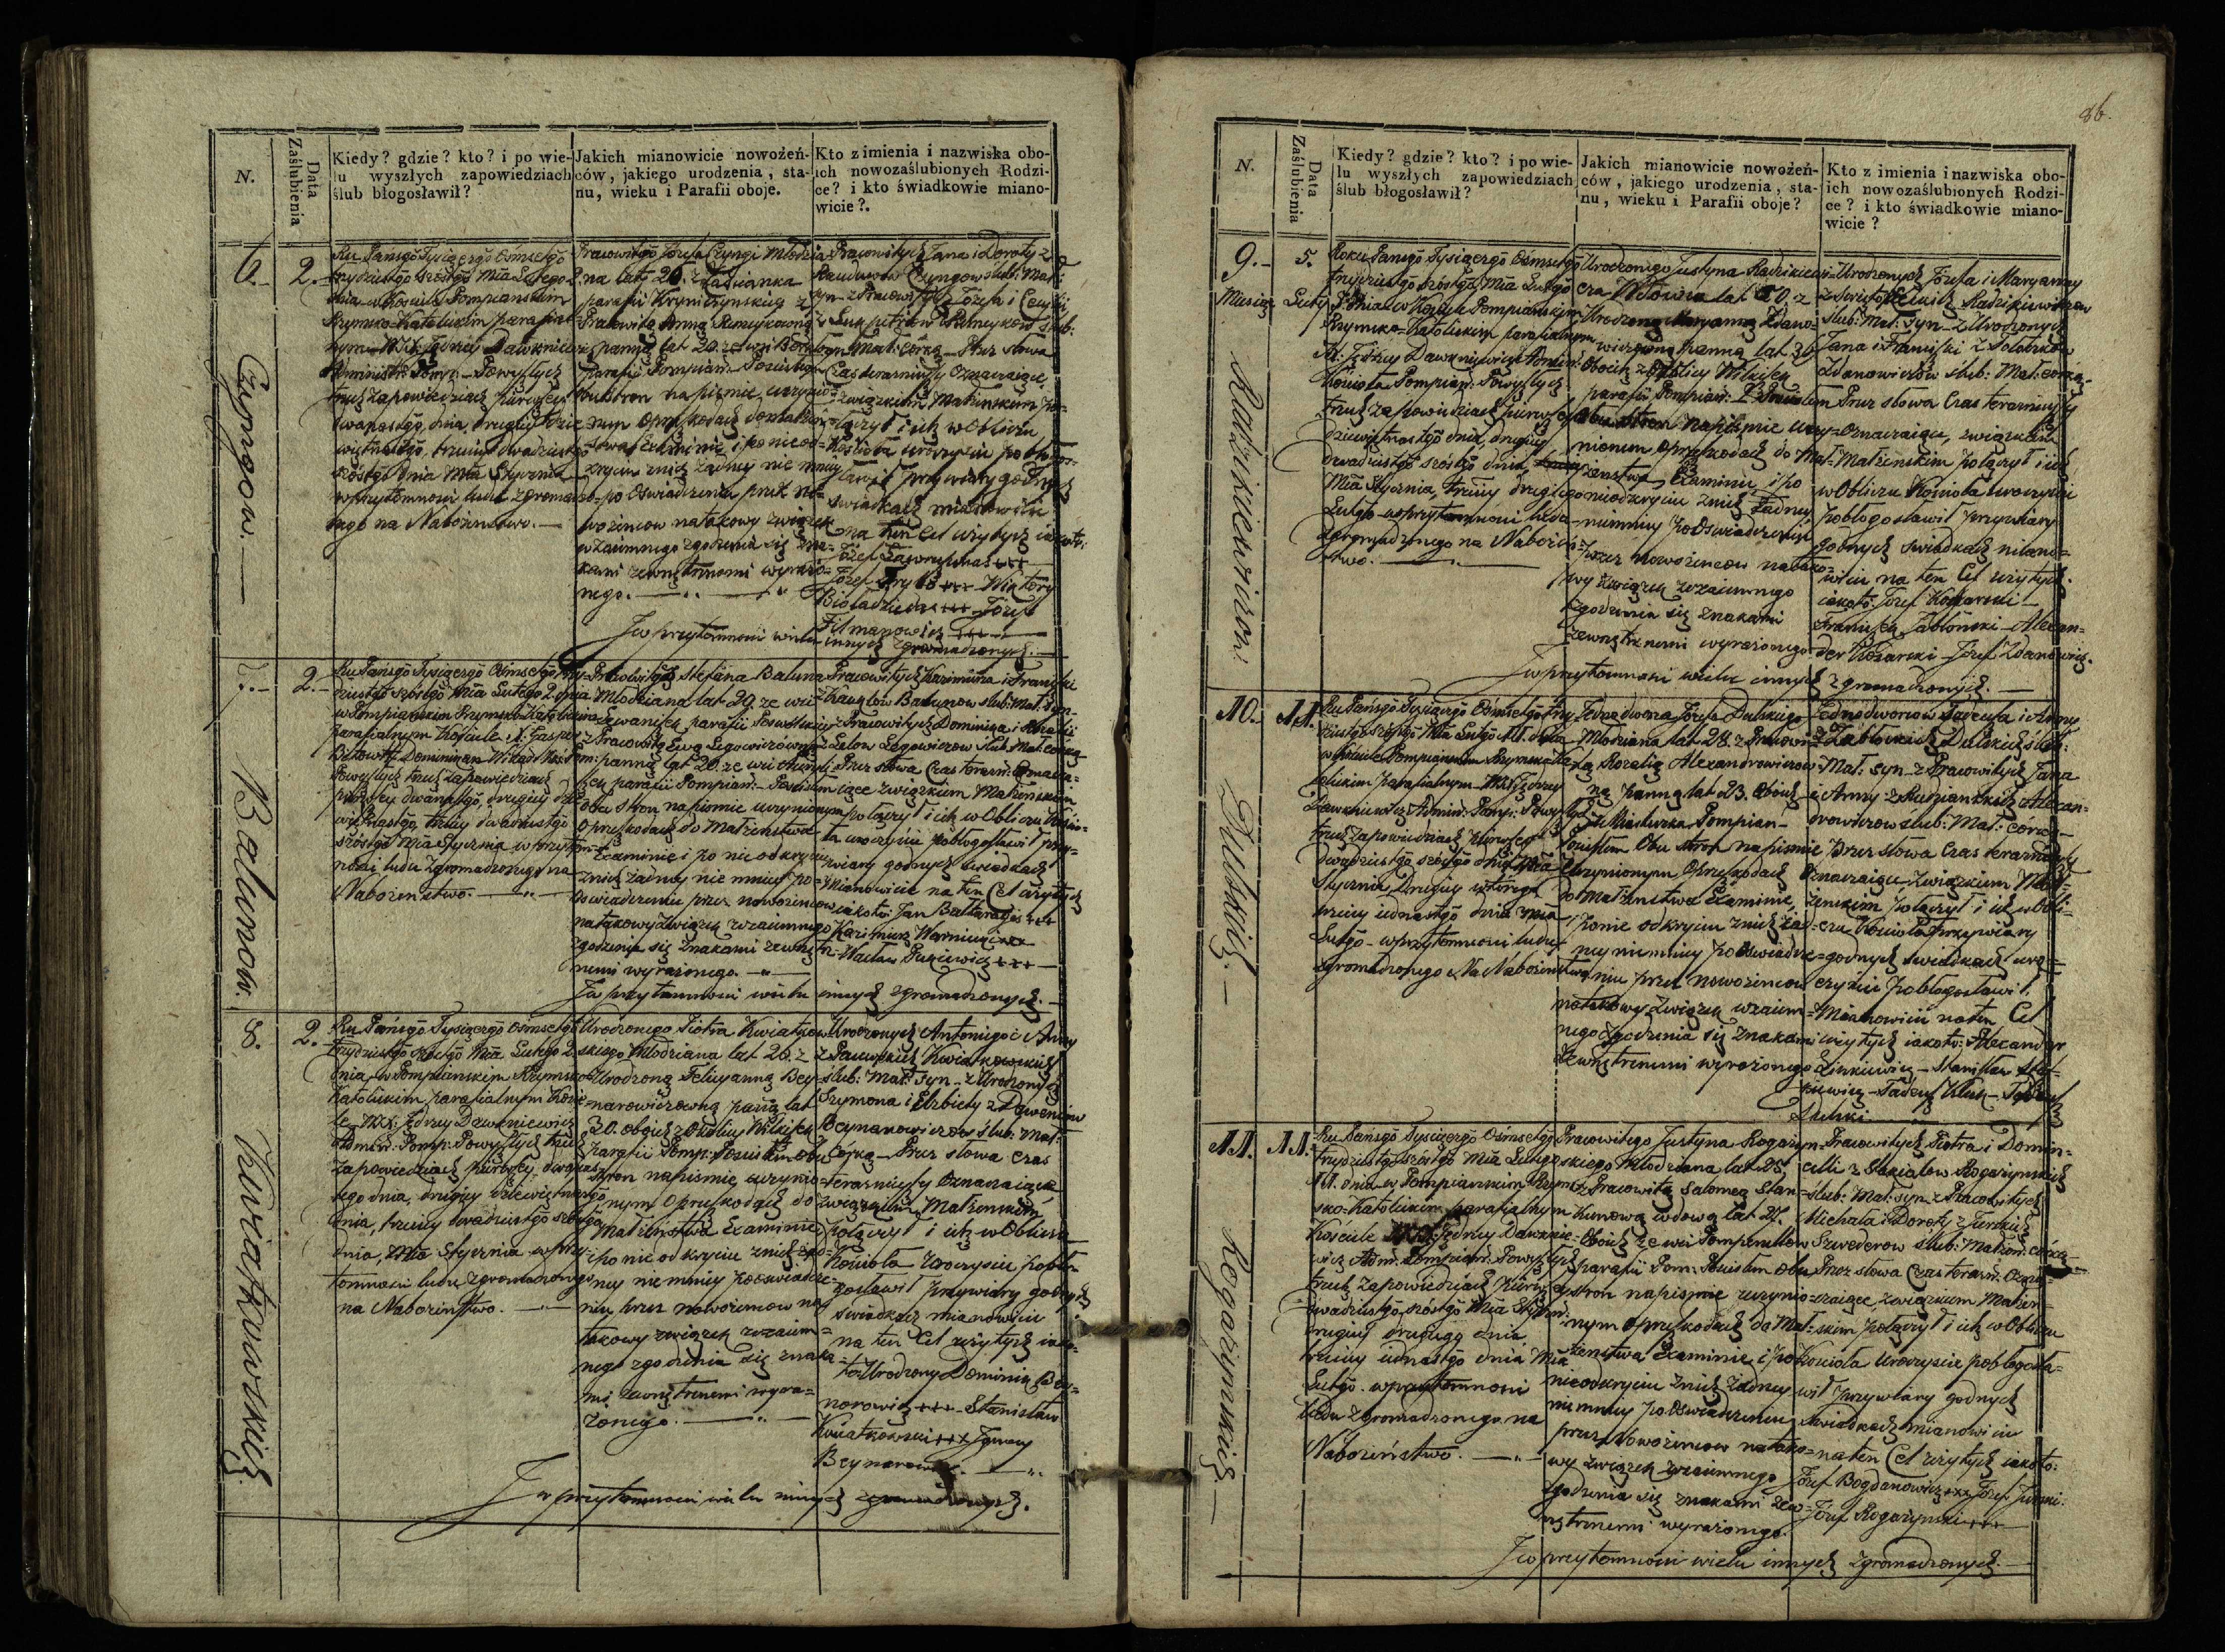 N.
Data Zaślubienia
Kiedy? gdzie? kto? i po wie-
lu wyszłych zapowiedziach
ślub błogosławił?
Jakich mianowicie nowożeń-
ców, jakiego urodzenia, sta-
nu, wieku i Parafii oboje.
Kto z imienia i nazwiska obo-
ich nowozaślubionych Rodzi-
ce? i kto świadkowie miano-
wicie?.
6.
2.
Czyngow.
Ru Pańsgo Tysiącgo Ośmsetgo
trzydziestgo szóstgo Mia Lutego 2.
dnia w Kościele Pompianskim
Rzymsko-Katolickim parafial
nym
Administr: Pomp:- Powyszłych
trzech zapowiedziach pierwszey
dwónastgo dnia, drugiey dzie
więtnastgo, trzeciey dwadziestgo
szóstgo dnia Mia Stycznia
w przytomności ludu zgroma
nego na Nabożeństwo.
Pracowitgo Józefa Czyngi Młodzia
na lat 26. z
parafii Krynczynskiey z
Pracowitą Anną
panną lat 20. ze wsi
parafii Pompian:- Poczułem
obu stron na piśmie, uczynio
nym o przeszkodach do Małżeń
stwa Examinie i po nieod=
kryciu z nich żadney nie mniey
po Oświadczeniu przez no=
wożeńcow na takowy związek
wzaiemnego zgodzenia się zna=
kami zewnętrznemi wyrażo=
nego.
Pracowitych Jana i Doroty z
Czyngow slub: Mał:
syn - z Pracowitych Józefa i Cecylii
slub:
Mał: córką - Przez słowa
Czas teraznieyszy Oznaczaiące,
związkiem Małżenskim po=
łączył i ich w Obliczu
Kościoła uroczyście pobłogo=
sławił przy wiary godnych
świadkach mianowicie
na ten Cel użytych iakoto:
Józef +++
Józef +++ Wiktory
+++ Józef
Filmanowicz +++
I w przytomności wielu innych zgromadzonych.
7.
2.
Balunow.
Ru Pańsgo Tysiącgo Ośmsetgo trzy
dziestgo szóstgo Mia Lutego 2. dnia
w Pompianskim Rzymsko-Katolickim
parafialnym Kościele X. Gasper
Dominikan
Powyszłych trzech zapowiedziach
pierwszey dwónastgo, drugiey dzie
więtnastgo, trzeciey dwadziestgo
szóstgo Mia Stycznia w przytom=
ności ludu zgromadzonego na
Nabożeństwo.
Pracowitgo Stefana Baluna
Młodziana lat 29. ze wsi
parafii
z Pracowitą Ewą Legowiczówną
panną lat 20. ze wsi
parafii Pompian:- Poczułem
obu stron na piśmie uczynionym
o przeszkodach do Małżeństwa
Examinie i po nieodkryciu
z nich żadney nie mniey po=
oświadczeniu przez nowożeńcow
na takowy związek wzaiemnego
zgodzenia się znakami zewnętrz=
nemi wyrażonego.
Pracowitych Kazimierza i Franciszki
z Balunow slub: Mał: syn
z Pracowitych Dominika i
Legowiczow slub: Mał: córką
Przez słowa Czas terazn: Oznacza=
iące związkiem Małżenskim
połączył i ich w Obliczu Kościo=
ła uroczyście pobłogosławił przy
wiary godnych świadkach
Mianowicie na ten Cel użytych
iakoto: Jan +++
Kazimierz +++
Wacław +++
I w przytomności wielu innych zgromadzonych.
8.
2.
Kwiatkowskich.
Ru Pańsgo Tysiącgo Ośmsetgo
trzydziestgo szóstgo Mia Lutego 2.
dnia w Pompianskim Rzymsko
Katolickim parafialnym Kości
le Jędrzey Dawkniewicz
Admin: Pomp: Powyszłych trzech
zapowiedziach pierwszey dwónas
tego dnia, drugiey dziewiętnastgo
dnia, trzeciey dwadziestgo szóstgo
dnia, Mia Stycznia w przy=
tomności ludu zgromadzonego
na Nabożeństwo.
Urodzonego Piotra Kwiatkow
skiego Młodziana lat 26. z
Urodzoną Felicyanną Bey=
narowiczowną panną lat
30. oboich z Okolicy Wilkiszek
parafii Pomp: Poczułem obu
stron na piśmie uczynio=
nym o przeszkodach do
Małżeństwa Examinie
i po nieodkryciu z nich żad=
ney nie mniey po oświadcze=
niu przez nowożeńcow na
takowy związek wzaiem=
nego zgodzenia się znaka=
mi zewnętrznemi wyra=
żonego.
Urodzonych Antoniego i Anny
z Kwiatkowskich
slub: Mał: syn - z Urodzonych
Szymona i Elżbiety z
Beynarowiczow slub: Mał:
Córką - Przez słowa czas
teraznieyszy Oznaczaiące
związkiem Małżenskim
połączył i ich w Obliczu
Kościoła uroczyście pobło=
gosławił przy wiary godnych
świadkach mianowicie
na ten Cel użytych iako=
to: Urodzony Dominik Bey=
narowicz +++ Stanisław
Kwiatkowski +++ Ignacy
Beynarowicz.
I w przytomności wielu innych zgromadzonych.
86.
N.
Data Zaślubienia
Kiedy? gdzie? kto? i po wie-
lu wyszłych zapowiedziach
ślub błogosławił?
Jakich mianowicie nowożeń-
ców, jakiego urodzenia, sta-
nu, wieku i Parafii oboje?
Kto z imienia i nazwiska obo-
ich nowozaślubionych Rodzi-
ce? i kto świadkowie miano-
wicie?
9.
Miesiąc
5.
Luty
Radzikiewiczow.
Roku Pańsgo Tysiącgo Ośmsetgo
trzydziestgo szóstgo Mia Lutgo
5. Dnia w Kościele Pompianskim
Rzymsko-Katolickim parafialnym
X. Jędrzey Dawkniewicz Admin:
Kościoła Pompian: Powyszłych
trzech zapowiedziach pierwszey
dziewiętnastgo dnia, drugiey
dwadziestgo szóstgo dnia,
Mia Stycznia, trzeciey drugiego
Lutgo w przytomności ludu
zgromadzonego na Nabożeń=
stwo.
Urodzonego Justyna Radzikiewi=
cza Wdowca lat 50. z
Urodzoną Maryanną Zdano=
wiczowną Panną lat 30
oboich z Okolicy Wilkiszek
parafii Pompian: Poczułem
obu stron na piśmie uczy=
nionem o przeszkodach do Mał=
żenstwa Examinie i po
nieodkryciu z nich żadney
niemniey po Oświadczeniu
przez nowożeńcow na tako=
wy związek wzaiemnego
zgodzenia się znakami
zewnętrznemi wyrażonego
Urodzonych Józefa i Maryanny
z Radzikiewiczow
slub: Mał: syn - z Urodzonych
Jana i Franciszki z
Zdanowiczów slub: Mał: córką
Przez słowa Czas teraznieyszy
Oznaczaiące, związkiem
Małżenskim połączył i ich
w Obliczu Kościoła uroczyście
pobłogosławił przy wiary
godnych świadkach miano=
wicie na ten Cel użytych
iakoto: Józef
Franciszek Jabłonski - Alexan=
der Józef Zdanowicz.
I w przytomności wielu innych zgromadzonych.
10.
11.
Dulskich.
Ru Pańsgo Tysiącgo Ośmsetgo trzy
dziestgo szóstgo Mia Lutgo 11. dnia
w Kościele Pompianskim Rzymsko Ka
tolickim parafialnym Jędrzey
Dawkniewicz Admin: Pomp: Powyszłych
trzech zapowiedziach pierwszey
dwadziestgo szóstgo dnia Mia
Stycznia Drugiey wtórego
trzeciey iednastgo dnia Mia
Lutgo - w przytomności ludu
zgromadzonego Na Nabożeństwo
Jednodworca Józefa Dulskiego
Młodziana lat 28. z Pracowi=
tą Rozalią Alexandrowiczow
ną panną lat 23. oboich
z Miasteczka Pompian-
Poczułem Obu stron na piśmie
Uczynionym o przeszkodach
do Małżenstwa Examinie,
i po nieodkryciu z nich żad=
ney niemniey po oświadcze=
niu przez nowożeńcow
na takowy związek wzaiem=
nego zgodzenia się znakami
zewnętrznemi wyrażonego
Jednodworcow Tadeusza i Anny
z Zabłockich Dulskich slub:
Mał: syn - z Pracowitych Jana
i Anny z Alexan=
drowiczow slub: Mał: córką
Przez słowa Czas teraznieyszy
Oznaczaiące związkiem Mał=
żenskim połączył i ich w Obli=
czu Kościoła przy wiary
godnych świadkach uro=
czyście pobłogosławił.
Mianowicie na ten Cel
użytych iakoto: Alexander
Linkiewicz - Stanisław
Tadeusz
Dulski
11.
11.
Rogażynskich
Ru Pańsgo Tysiącgo Ośmsetgo
trzydziestgo szóstgo Mia Lutego
11. dnia w Pompianskim Rzym=
sko-Katolickim parafialnym
Kościele Jędrzey Dawknie=
wicz Adm: Pompian: Powyszłych
trzech zapowiedziach pierwszey
dwadziestgo szóstgo Mia Stycz:
drugiey drugiego dnia
trzeciey iednastgo dnia Mia
Lutgo w przytomności
ludu zgromadzonego na
Nabożeństwo.
Pracowitego Justyna Rogażyn
skiego Młodziana lat 25.
z Pracowitą Salomeą Stan=
kunową wdową lat 27.
oboich ze wsi
parafii Pom: Poczułem obu
stron na piśmie uczynio=
nym o przeszkodach do Mał=
żenstwa Examinie, i po
nieodkryciu z nich żadney
niemniey po Oświadczeniu
przez Nowożeńcow na tako=
wy związek wzaiemnego
zgodzenia się znakami zew=
nętrznemi wyrażonego.
Pracowitych Piotra i Domin=
celli z Rogażynskich
slub: Mał: syn z Pracowitych
Michała i Doroty z
Szwederow slub: Małżon: córką
Przez słowa Czas terazn: Ozna=
czaiące, związkiem Małżeń=
skim połączył i ich w Obliczu
Kościoła Uroczyście pobłogosła=
wił przy wiary godnych
świadkach mianowicie
na ten Cel użytych iakoto:
Józef Bogdanowicz +++ Józef
Józef Rogażynski +++
I w przytomności wielu innych zgromadzonych.